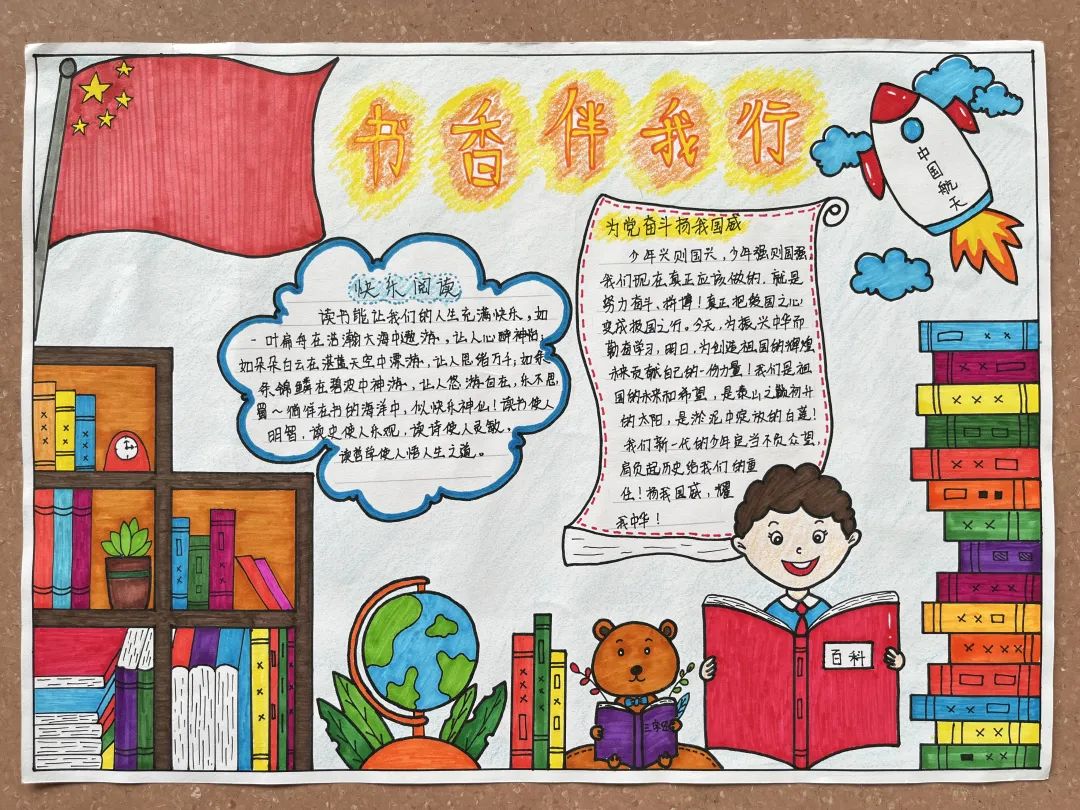 书香伴我行
中国航天
快乐阅读
读书能让我们的人生充满快乐,如
一叶扁舟在浩瀚大海中遨游,让人心醉神怡;
如朵朵白云在湛蓝天空中漂游,让人思绪万千;如条
条锦鳞在碧波中神游,让人悠游自在,乐不思
蜀~徜徉在书的海洋中,似快乐神仙!读书使人
明智,读史使人乐观,读诗使人灵敏,
读哲学使人悟人生之道。
为党奋斗扬我国威
少年兴则国兴,少年强则国强
我们现在真正应该做的,就是
努力奋斗,拼搏!真正把爱国之心
变成报国之行。今天,为振兴中华而
勤奋学习,明日,为创造祖国的辉煌
未来贡献自己的一份力量!我们是祖
国的未来和希望,是泰山之巅初升
的太阳,是淤泥中绽放的白莲!
我们新一代的少年应当不负众望,
肩负起历史给我们的重
任!扬我国威,耀
我中华!
百科
三字经